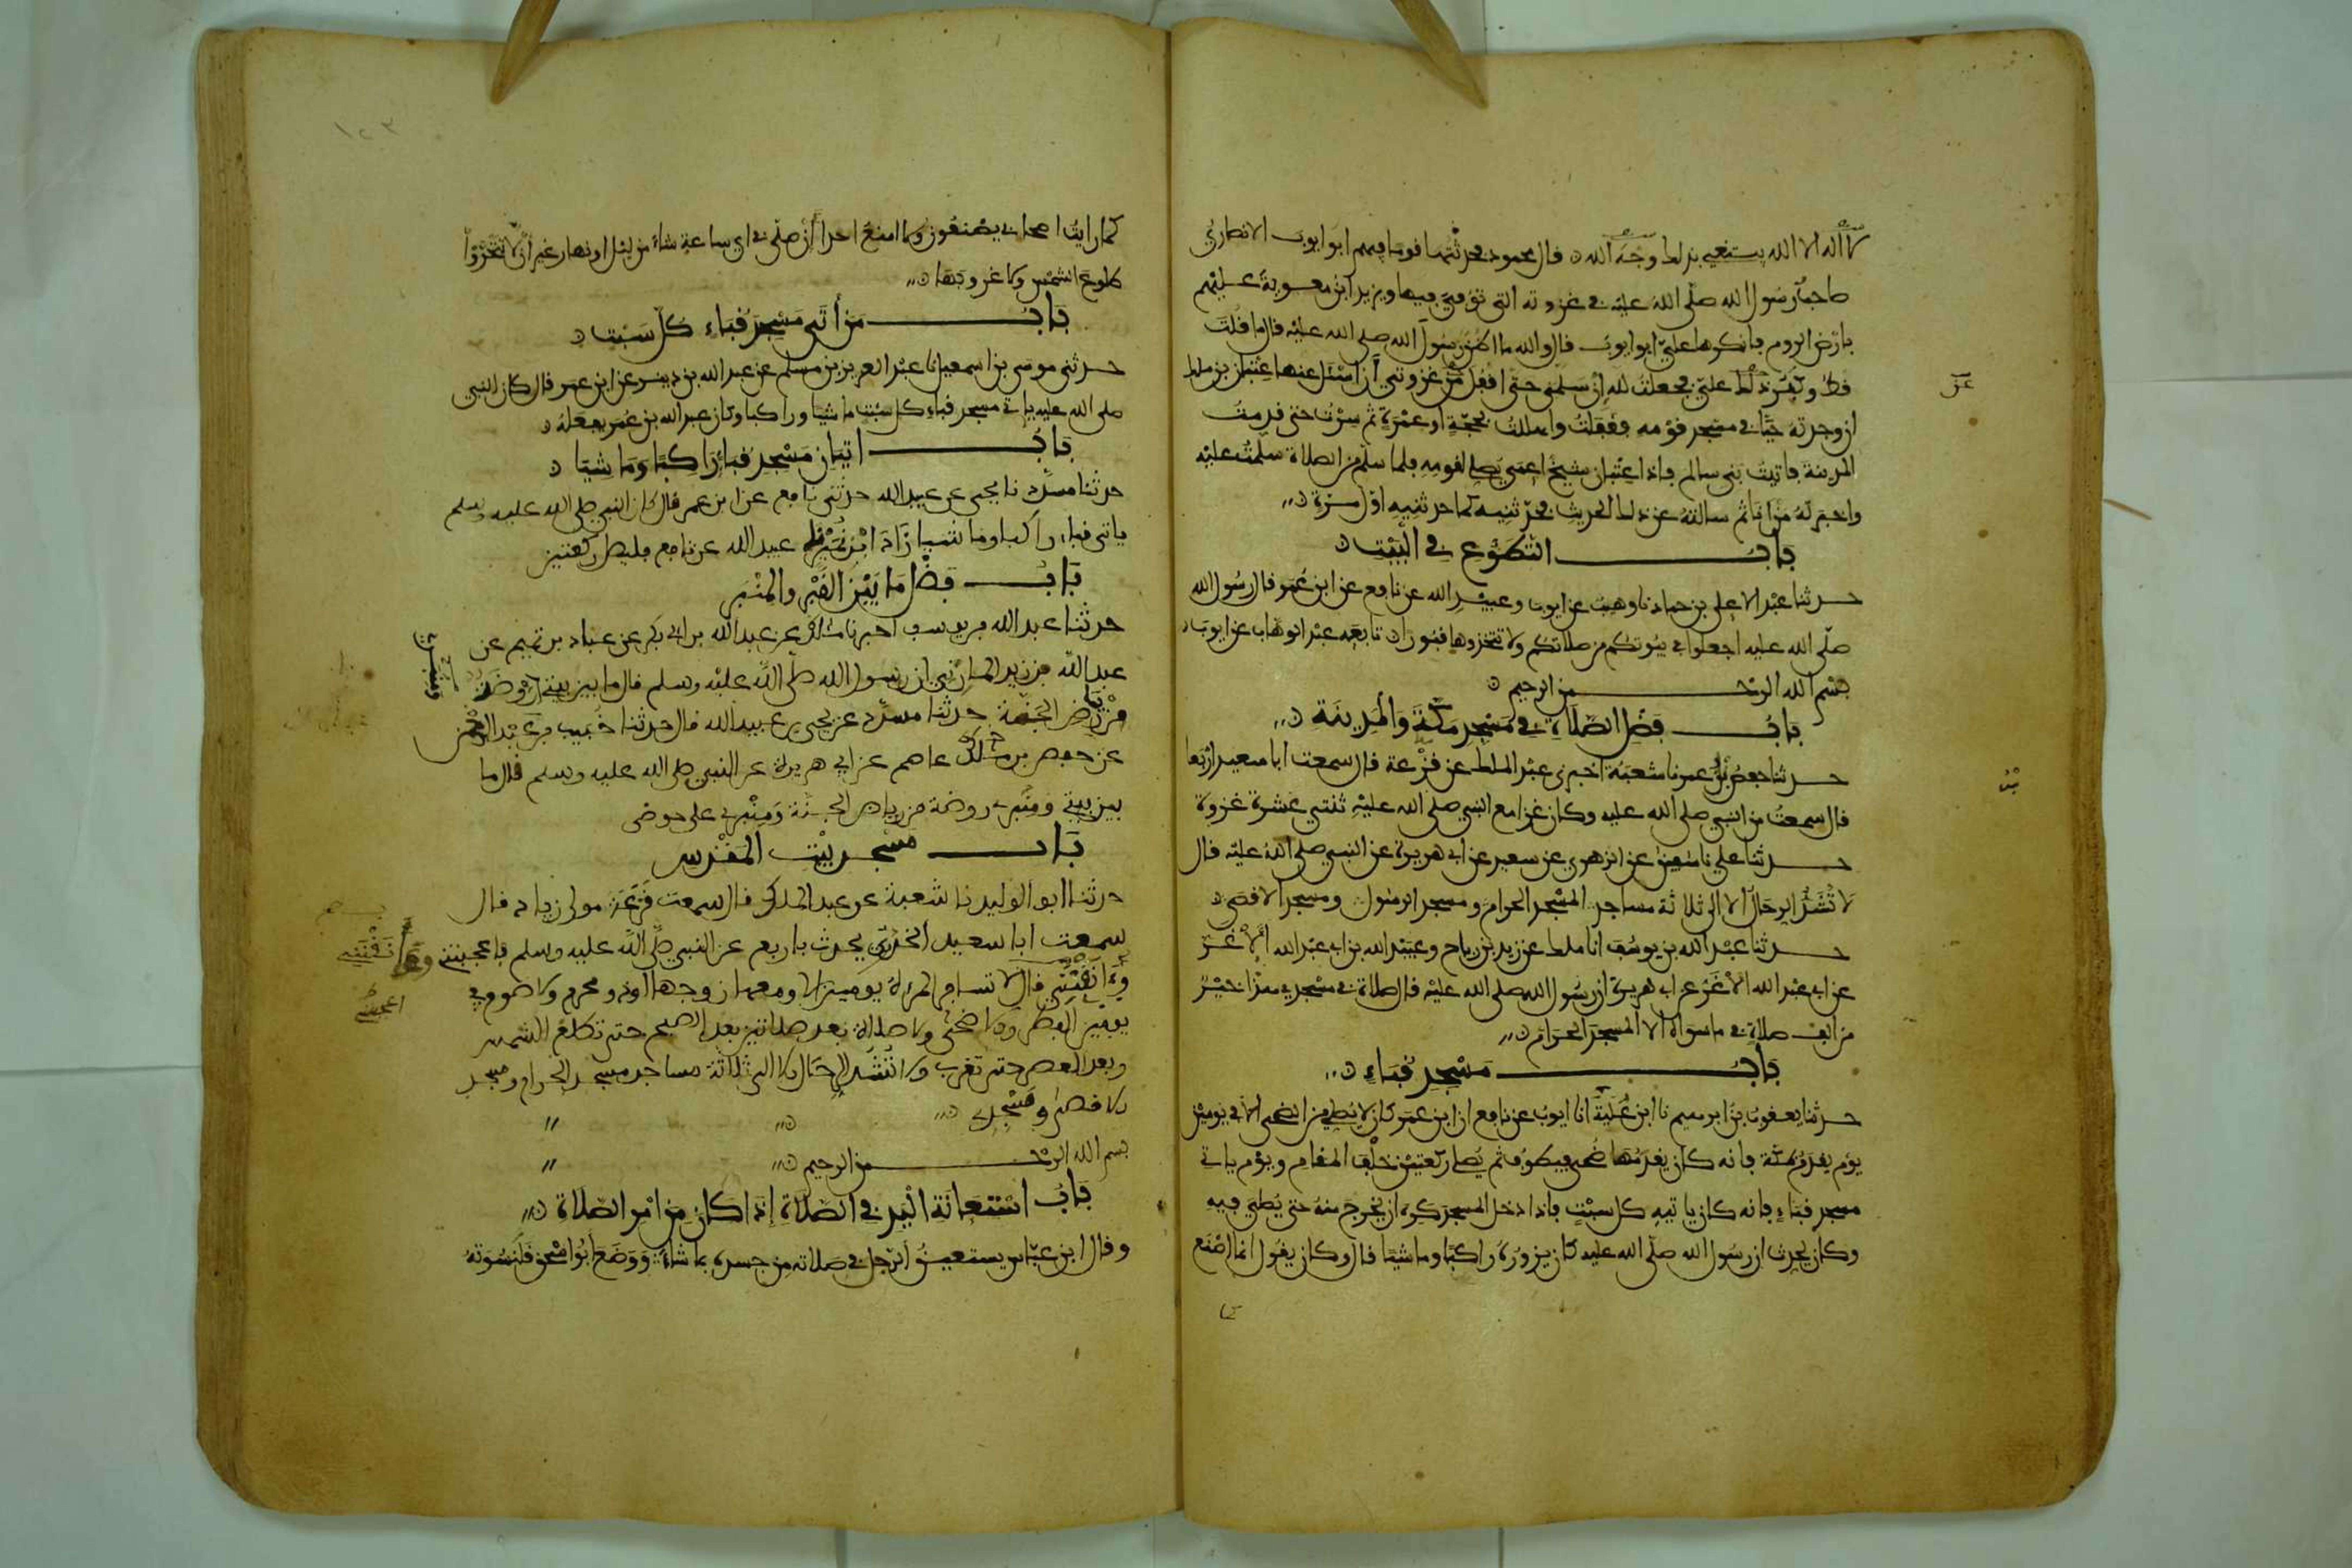 لا اله الا الله يبتغي بذلك وجه الله قال محمود فحدثتها قوما فيهم ابو ايوب الانصاري
صاحب رسول الله صلى الله عليه في غزوته التي توفي فيها ويزيد ابن معوية عليهم
بارض الروم فانكرها علي ابو ايوب قال والله ما اظن رسول الله صلى الله عليه قال ما قلت
قط وكبر ذلك علي فجعلت لله ان سلمني حتى اقفل من غزوتي ان اسئل عنها عتبان بن ملك
ان وجدته حيا في مسجد قومه فقفلت واهللت بحجة او عمرة ثم سرت حتى قدمت
المدينة فاتيت بني سالم فاذا عتبان شيخ اعمى يصلي لقومه فلما سلم من الصلاة سلمت عليه
واخبرته من انا ثم سالته عن ذلك الحديث فحدثنيه كما حدثنيه اول مرة
باب التطوع في البيت
حدثنا عبد الاعلى بن حماد نا وهيب عن ايوب وعبيد الله عن نافع عن ابن عمر قال رسول الله
صلى الله عليه اجعلوا في بيوتكم من صلاتكم ولا تتخذوها قبورا تابعه عبد الوهاب عن ايوب
بسم الله الرحمن الرحيم
باب فضل الصلاة في مسجد مكة والمدينة
حدثنا حفص بن عمر نا شعبة اخبرني عبد الملك عن قزعة قال سمعت ابا سعيد اربعا
قال سمعت من النبي صلى الله عليه وكان غزا مع النبي صلى الله عليه ثنتي عشرة غزوة
حدثنا علي نا سفين عن الزهري عن سعيد عن ابي هريرة عن النبي صلى الله عليه قال
لا تشد الرحال الا الى ثلاثة مساجد المسجد الحرام ومسجد الرسول ومسجد الاقصى
حدثنا عبد الله بن يوسف انا ملك عن زيد بن رباح وعبيد الله بن ابي عبد الله الاغر
عن ابي عبد الله الاغر عن ابي هريرة ان رسول الله صلى الله عليه قال صلاة في مسجدي هذا خير
من الف صلاة في ما سواه الا المسجد الحرام
باب مسجد قباء
حدثنا يعقوب بن ابرهيم نا ابن علية انا ايوب عن نافع ان ابن عمر كان لا يصلي من الضحى الا في يومين
يوم يقدم مكة فانه كان يقدمها ضحى فيطوف ثم يصلي ركعتين خلف المقام ويوم ياتي
مسجد قباء فانه كان ياتيه كل سبت فاذا دخل المسجد كره ان يخرج منه حتى يصلي فيه
وكان يحدث ان رسول الله صلى الله عليه كان يزوره راكبا وماشيا قال وكان يقول انما اصنع
كما
كما رايت اصحابي يصنعون ولا امنع احدا ان صلى في اي ساعة شاء من ليل او نهار غير ان لا تتحروا
طلوع الشمس ولا غروبها
باب من اتى مسجد قباء كل سبت
حدثني موسى بن اسمعيل نا عبد العزيز بن مسلم عن عبد الله بن دينر عن ابن عمر قال كان النبي
صلى الله عليه ياتي مسجد قباء كل سبت ماشيا وراكبا وكان عبد الله بن عمر يفعله
باب اتيان مسجد قباء راكبا وماشيا
حدثنا مسدد نا يحيى عن عبيد الله حدثني نافع عن ابن عمر قال كان النبي صلى الله عليه وسلم
ياتي قباء راكبا وماشيا زاد ابن نمير نا عبيد الله عن نافع فيصلي ركعتين
باب فضل ما بين القبر والمنبر
حدثنا عبد الله بن يوسف اخبرنا مالك عن عبد الله بن ابي بكر عن عباد بن تميم عن
عبد الله بن زيد المازني ان رسول الله صلى الله عليه وسلم قال ما بين بيتي ومنبري روضة
من رياض الجنة حدثنا مسدد عن يحيى عن عبيد الله قال حدثنا خبيب بن عبد الرحمن
عن حفص بن عاصم عن ابي هريرة عن النبي صلى الله عليه وسلم قال ما
بين بيتي ومنبري روضة من رياض الجنة ومنبري على حوضي
باب مسجد بيت المقدس
حدثنا ابو الوليد نا شعبة عن عبد الملك قال سمعت قزعة مولى زياد قال
سمعت ابا سعيد الخدري يحدث باربع عن النبي صلى الله عليه وسلم فاعجبنني وءانقنني
وءانقنني قال لا تسافر المرءة يومين الا ومعها زوجها او ذو محرم ولا صوم في
يومين الفطر والاضحى ولا صلاة بعد صلاتين بعد الصبح حتى تطلع الشمس
وبعد العصر حتى تغرب ولا تشد الرحال الا الى ثلاثة مساجد مسجد الحرام ومسجد
الاقصى ومسجدي
بسم الله الرحمن الرحيم
باب استعانة اليد في الصلاة اذا كان من امر الصلاة
وقال ابن عباس يستعين الرجل في صلاته من جسده بما شاء ووضع ابو اسحق قلنسوته